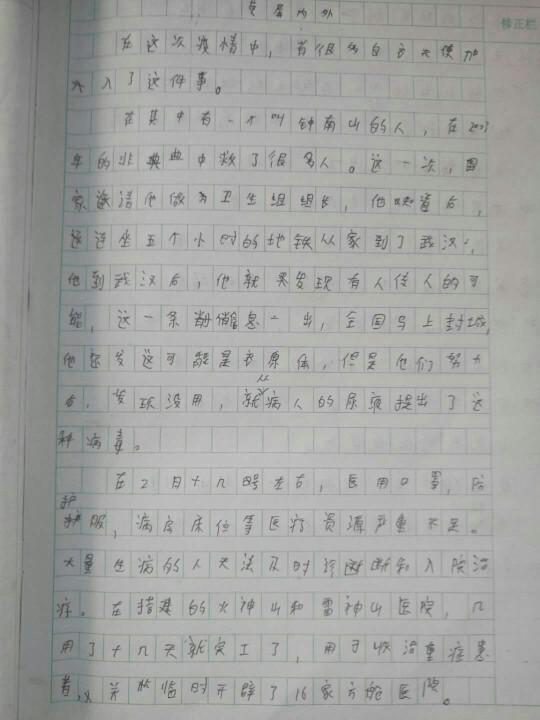 修正栏
在这次疫情中，有很多白衣天使加
入了这件事。
在其中有一个叫钟南山的人，在2003
年的非典典中救了很多人。这一次，国
家邀请他做为卫生组组长，他知道后，
连坐五个小时的地铁从家到了武汉，
他到武汉后，他就发现有人传人的可
能，这一条消息一出，全国马上封城，
他还发这可能是衣原体，但是他们努力
后，发现没用，就从病人的尿液提出了这
种病毒。
在2月十几号左右，医用口罩，防
护服，病房床位等医疗资源严重不足。
大量生病的人无法及时诊断和入院治
疗。在搭建的火神山和雷神山医院，只
用了十几天就完工了，用于收治重症患
者，并临时开辟了16家方舱医院。